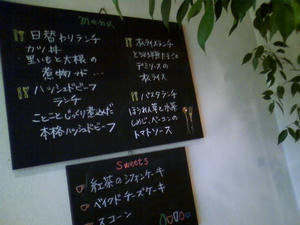 menu
日替わりランチ
カツ丼
黒いもと大根の
煮物
ハッシュドビーフ
ランチ
ことこと じっくり煮込んだ
本格ハッシュドビーフ
オムライスランチ
とろとろ半熟たまごの
デミソースの
オムライス
パスタランチ
ほうれん草と小茶
しめじ、ベーコンの
トマトソース
Sweets
紅茶のシフォンケーキ
ベイクドチーズケーキ
スコーン